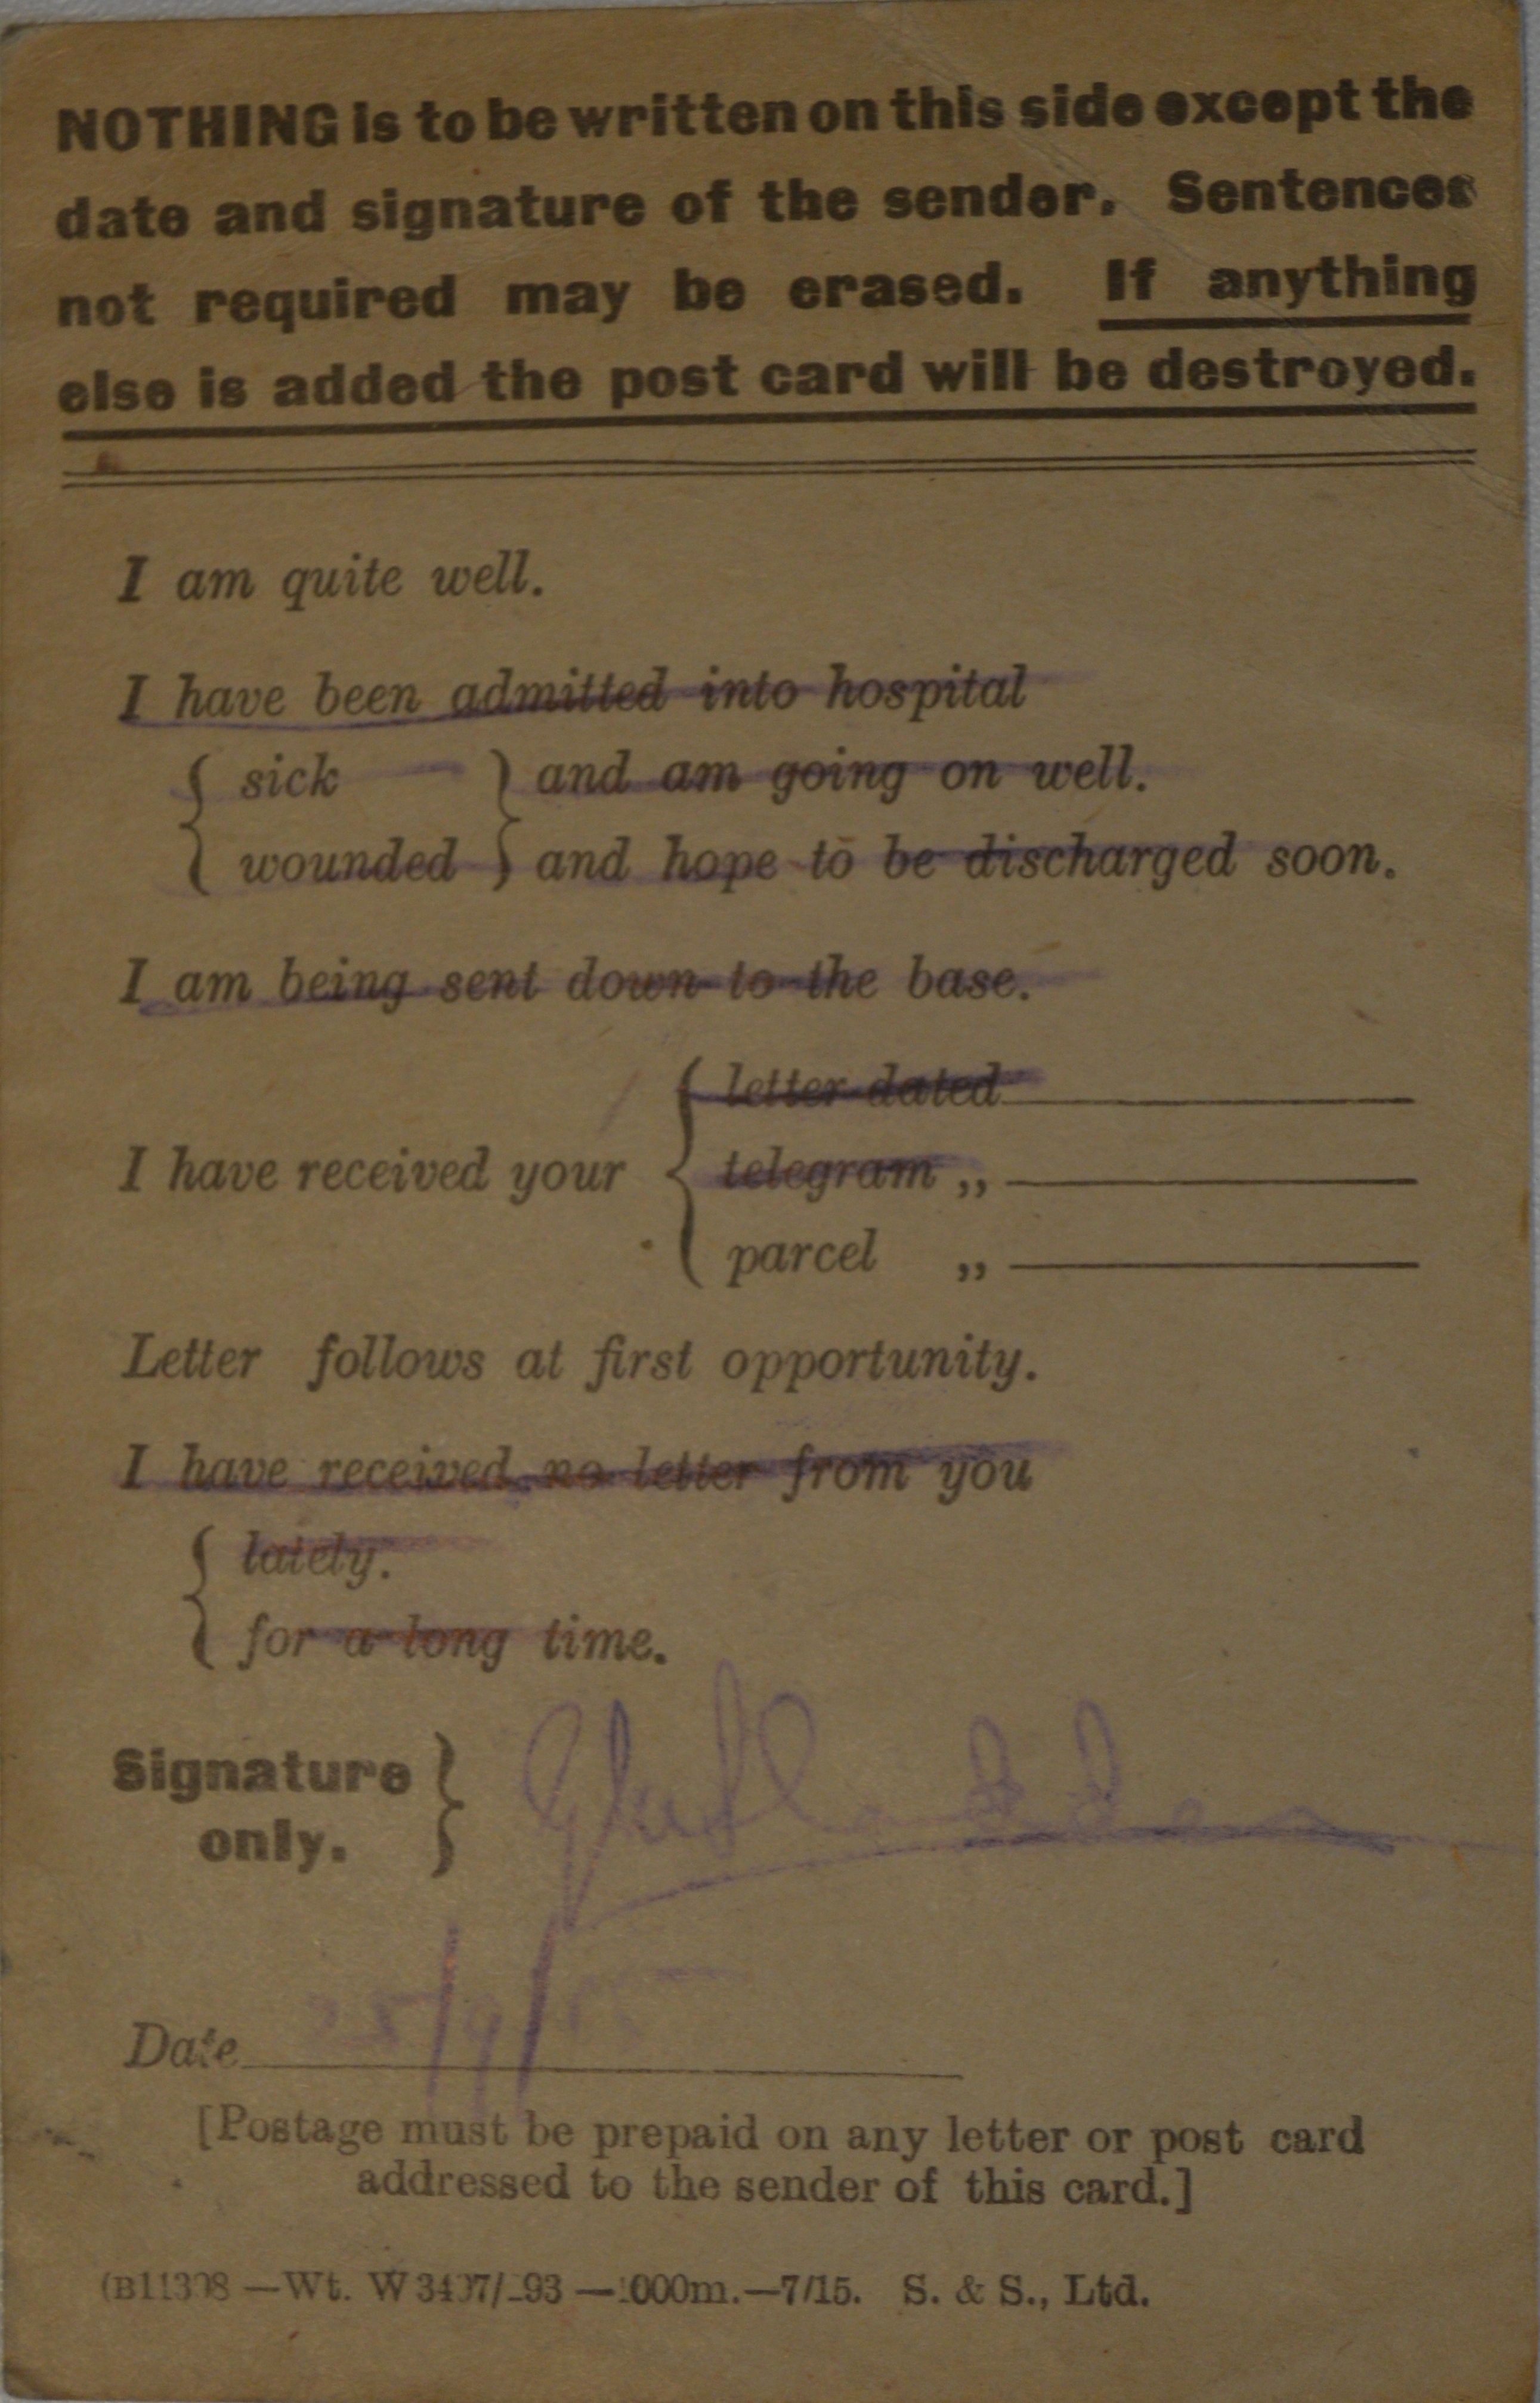 NOTHING is to be written on this side except the
date and signature of the sender. Sentences
not required may be erased. If anything
else is added the post card will be destroyed.
I am quite well.
I have been admitted into hospital
{ sick } and am going on well.
{ wounded } and hope to be discharged soon.
I am being sent down to the base.
letter dated
I have received your { telegram ,,
parcel ,,
Letter follows at first opportunity.
I have received no letter from you
{ lately.
for a long time.
Signature
only. }
Date 25/9/15
[Postage must be prepaid on any letter or post card
addressed to the sender of this card.]
—Wt. —7/15. S. & S., Ltd.